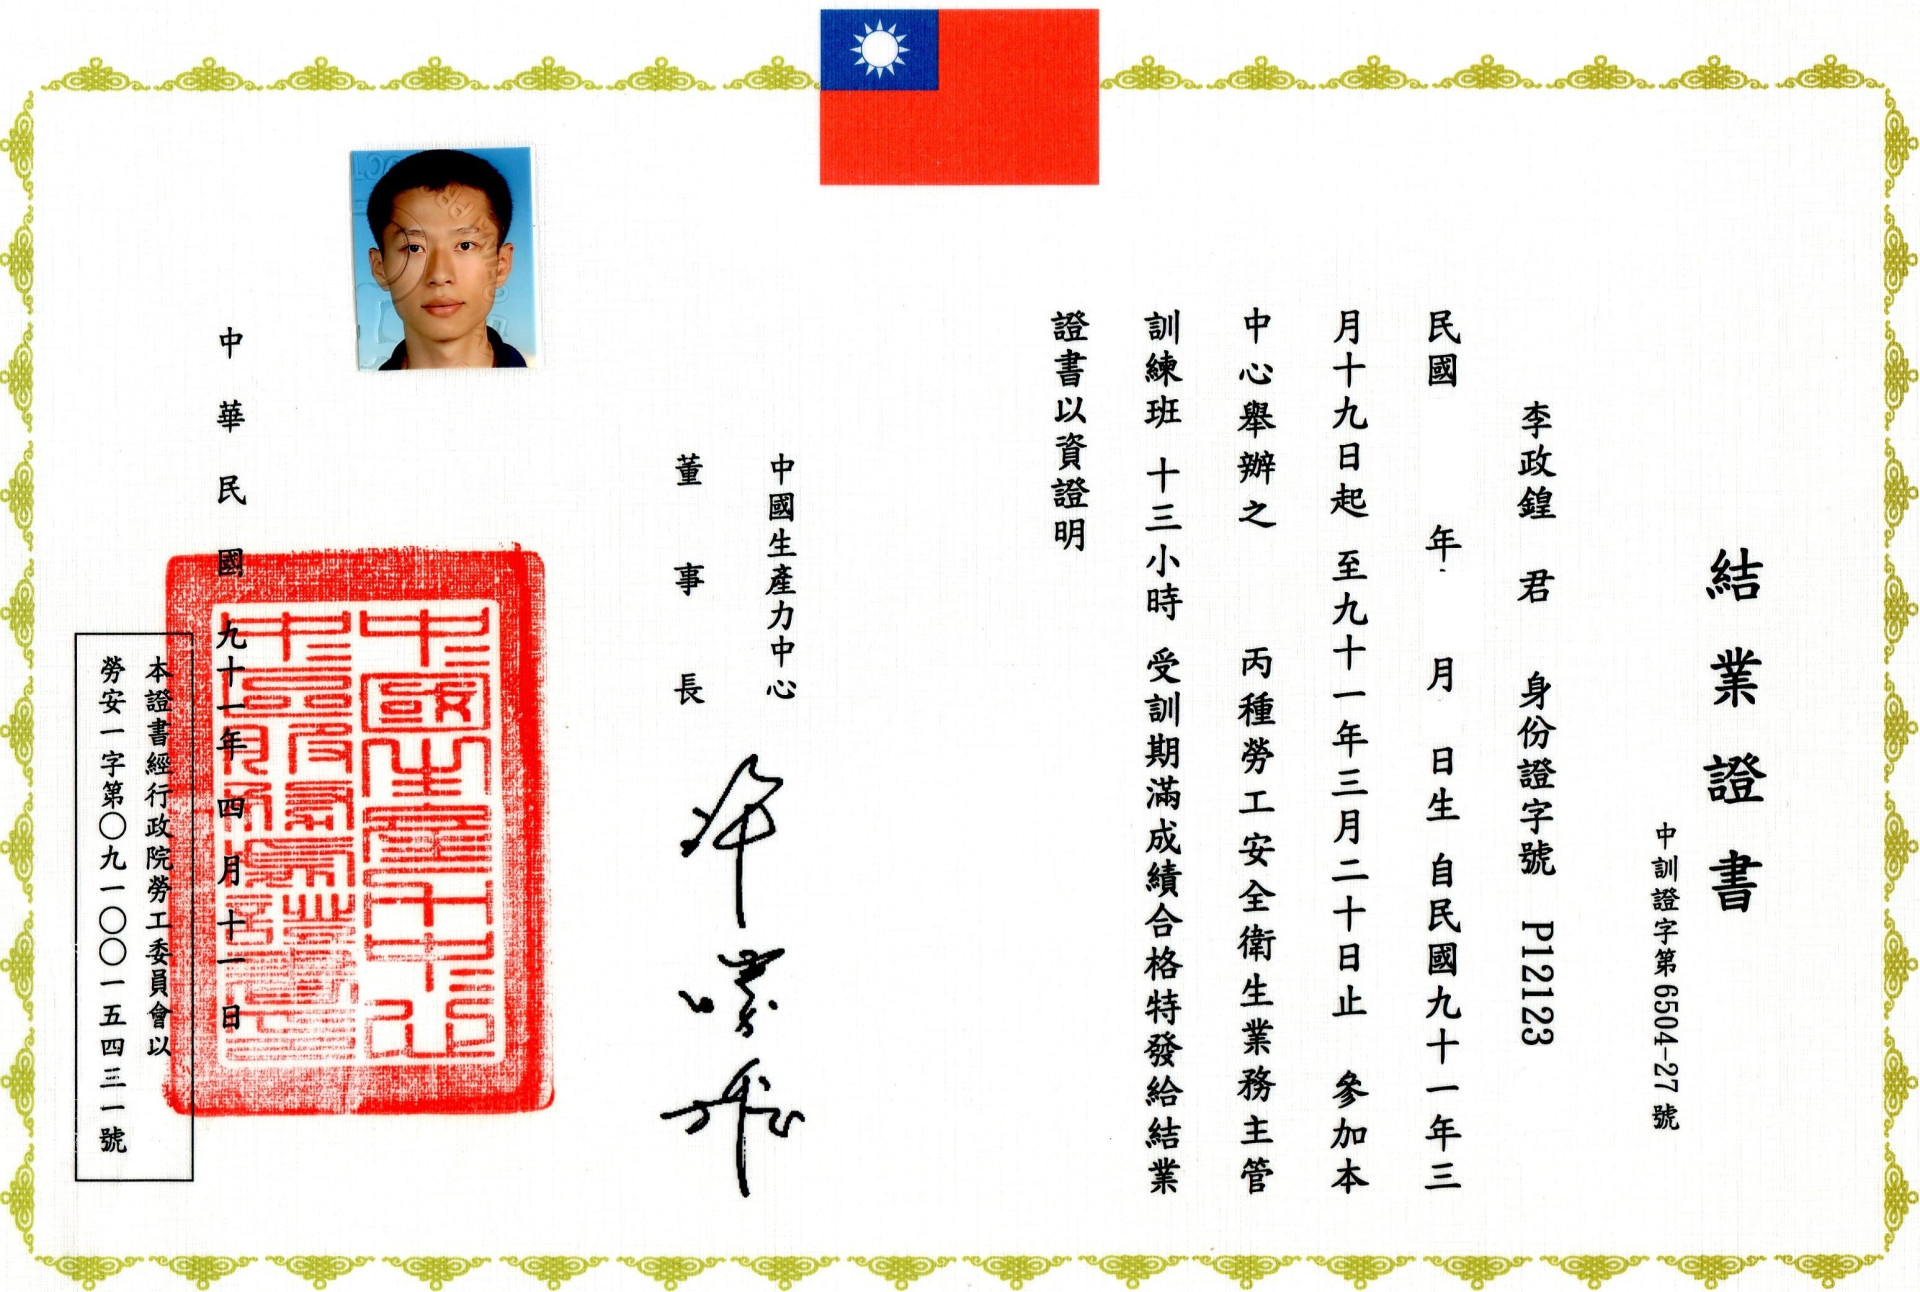 結業證書
中訓證字第6504-27號
李政鍠 君 身份證字號 P12123
民國 年 月 日生 自民國九十一年三
月十九日起 至九十一年三月二十日止 參加本
中心舉辦之 丙種勞工安全衛生業務主管
訓練班 十三小時 受訓期滿成績合格特發給結業
證書以資證明
中國生產力中心
董事長
中華民國九十一年四月十一日
本證書經行政院勞工委員會以
勞安一字第〇九一〇〇一五四三一號